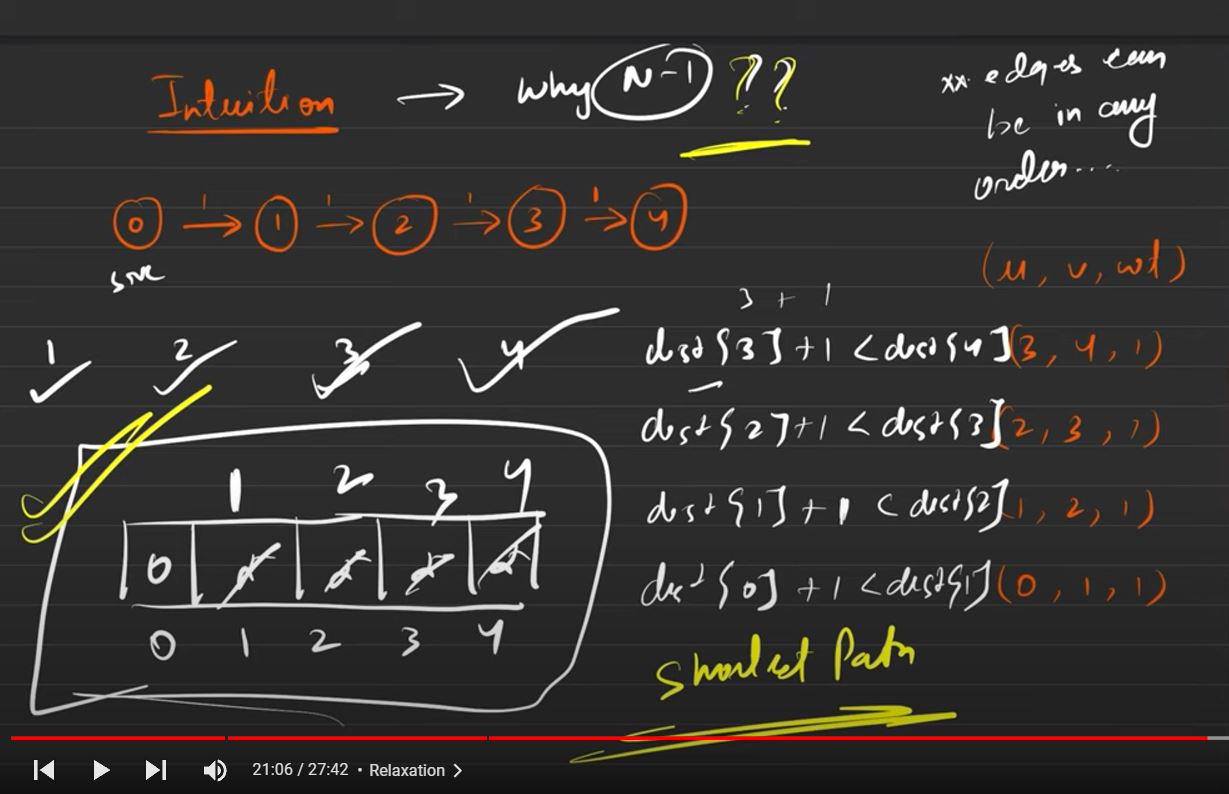 Intuition → Why N-1 ??
xx edges can
be in any
order....
0 1→ 1 1→ 2 1→ 3 1→ 4
src
(u, v, wt)
3 + 1
1 2 3 4
dist[3]+1 < dist[4] (3, 4, 1)
dist[2]+1 < dist[3] (2, 3, 1)
dist[1]+1 < dist[2] (1, 2, 1)
dist[0]+1 < dist[1] (0, 1, 1)
1 2 3 4
0
0 1 2 3 4
Shortest Path
21:06 / 27:42 • Relaxation >